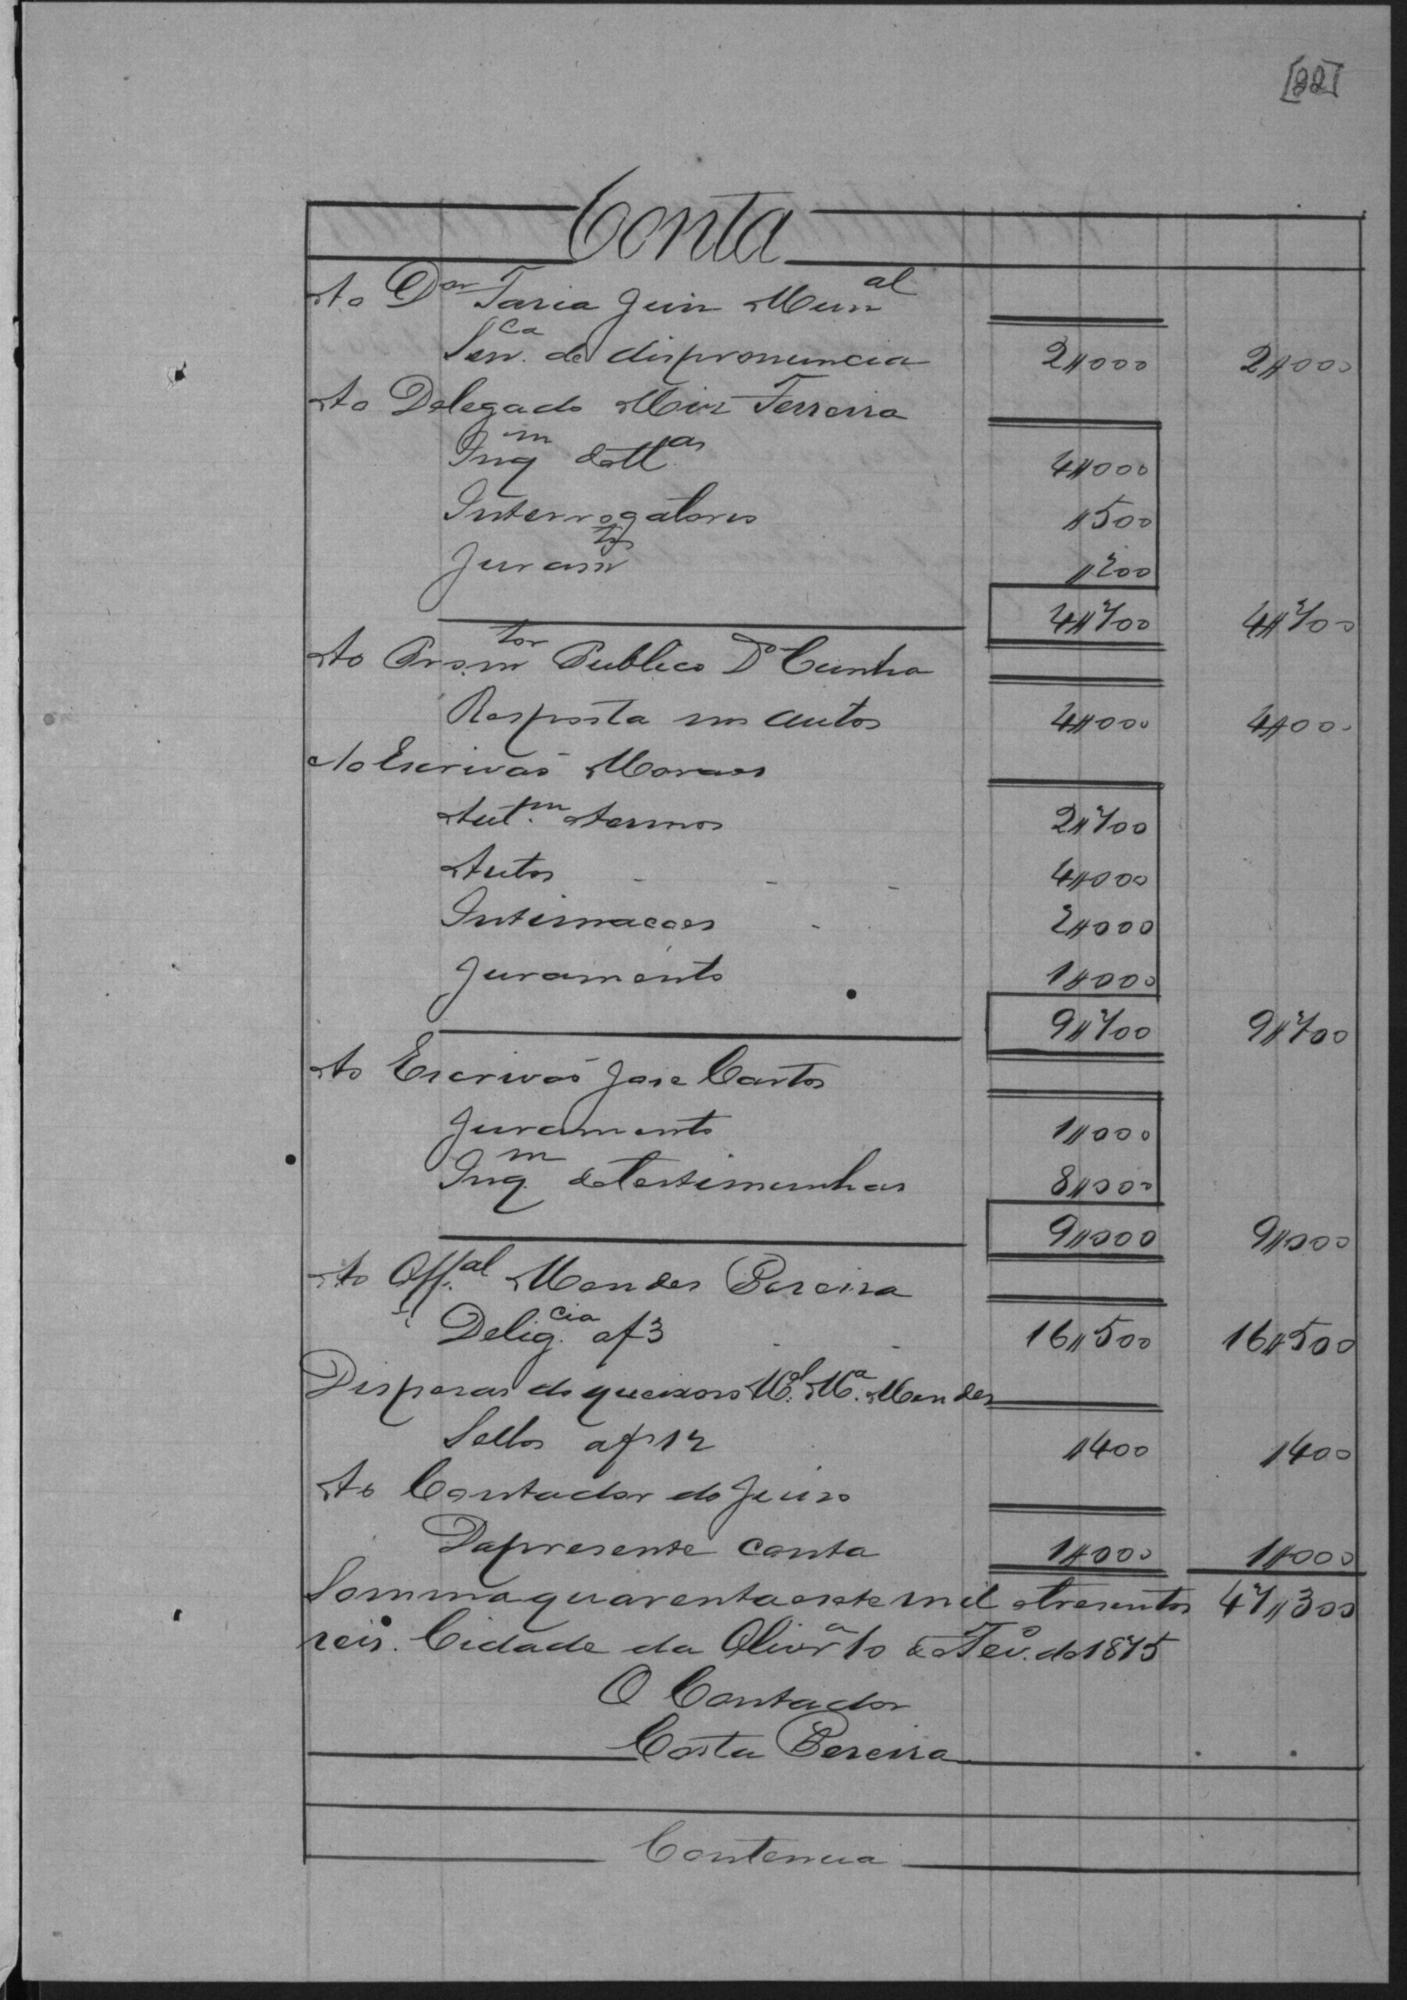 [22]
Conta
Ao D.or Faria Juiz Mun.al
Sen.ca de dispronuncia 2"000 2"000
Ao Delegado Miz Ferreira
Inq.m de tt.as 4"000
Interrogatorio "500
Juram.to "200
4"700 4"700
Ao Prom.tor Publico D.o Cunha
Resposta nos autos 4"000 4"000
Ao Escrivaõ Moraes
Aut.m etermos 2"700
Autos 4"000
Intimacoes 2"000
Juramento 1"000
9"700 9"700
Ao Escrivaõ Jose Carlos
Juramento 1"000
Inq.m detestimunhas 8"000
9"000 9"000
Ao Off.al Mendes Pereira
Delig.cia af3 16"500 16"500
Dispesas do queixoso M.el M.a Mendes
Sellos af12 "400 "400
Ao Contador do Juizo
Dapresente conta 1"000 1"000
Sommaquarentaesete mil etresentos 47"300
reis. Cidade da Olivr.a 10 de Fev.o de 1875
O Contador
Costa Pereira
Contencia